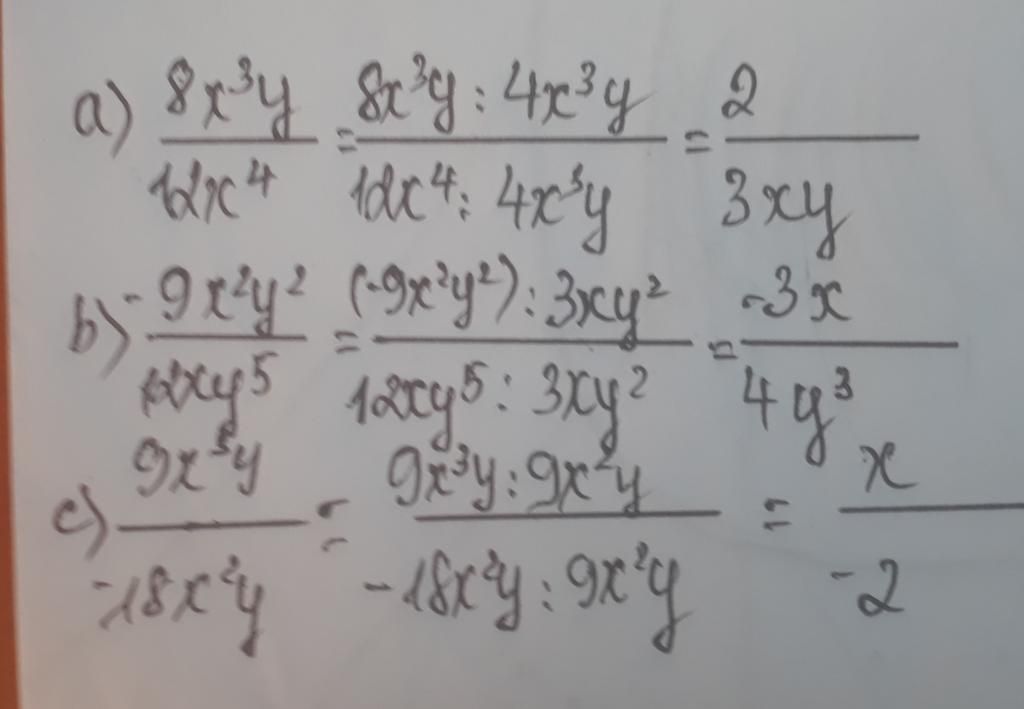 a) 8x³y / 12x⁴ = 8x³y : 4x³y / 12x⁴ : 4x³y = 2 / 3xy
b) -9x²y² / 12xy⁵ = (-9x²y²) : 3xy² / 12xy⁵ : 3xy² = -3x / 4y³
c) 9x³y / -18x²y = 9x³y : 9x²y / -18x²y : 9x²y = x / -2